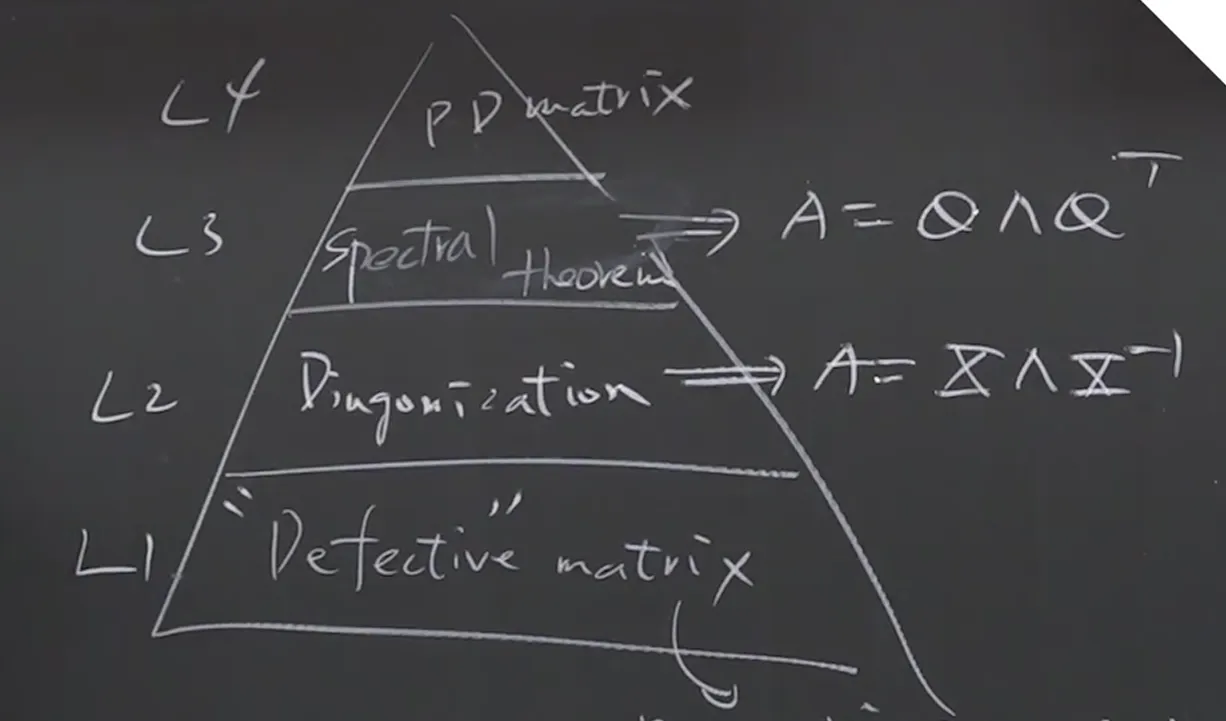 L4 PD matrix
L3 Spectral theorem ⇒ A = QΛQ^T
L2 Diagonization ⇒ A = XΛX^-1
L1 "Defective" matrix